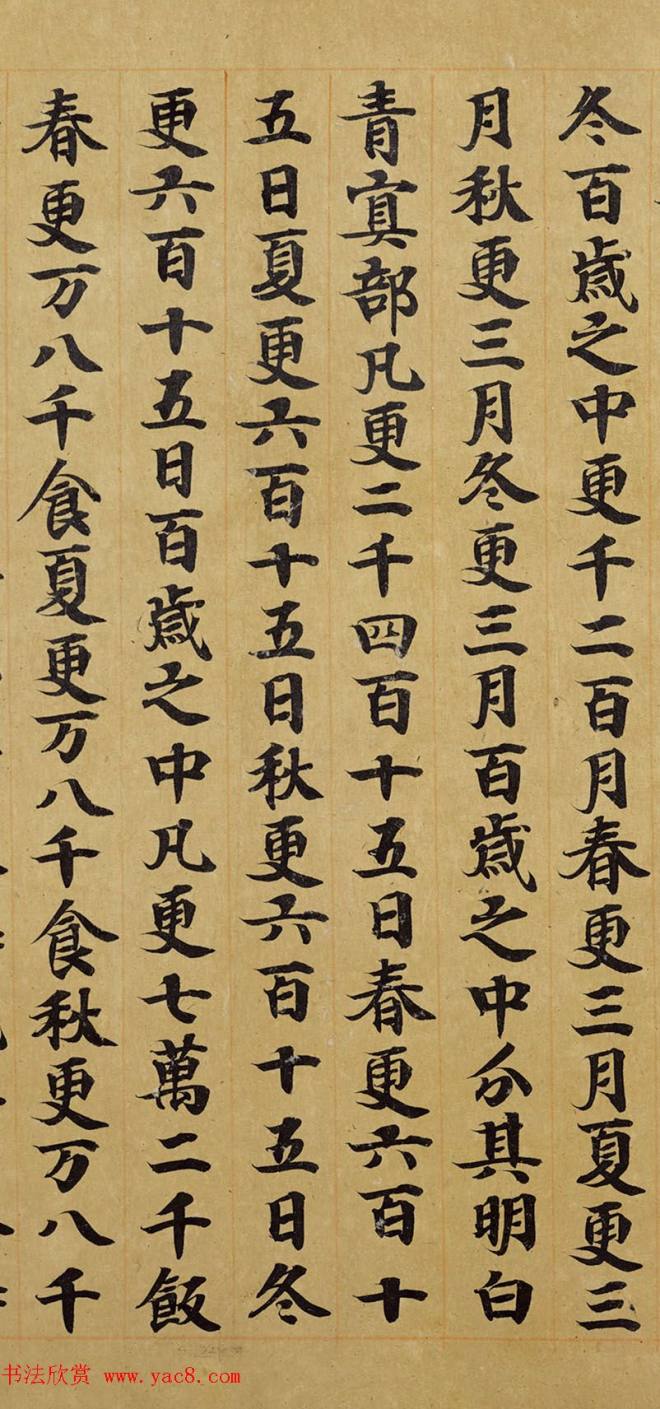 冬百歲之中更千二百月春更三月夏更三
月秋更三月冬更三月百歲之中分其明白
青寘部凡更二千四百十五日春更六百十
五日夏更六百十五日秋更六百十五日冬
更六百十五日百歲之中凡更七萬二千飯
春更万八千食夏更万八千食秋更万八千
书法欣赏 www.yac8.com